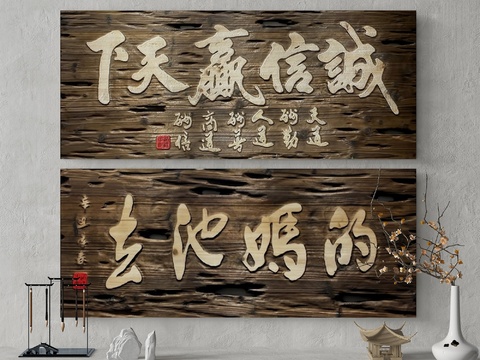 誠信贏天下
天道
酬勤
人道
酬善
商道
酬信
去他媽的